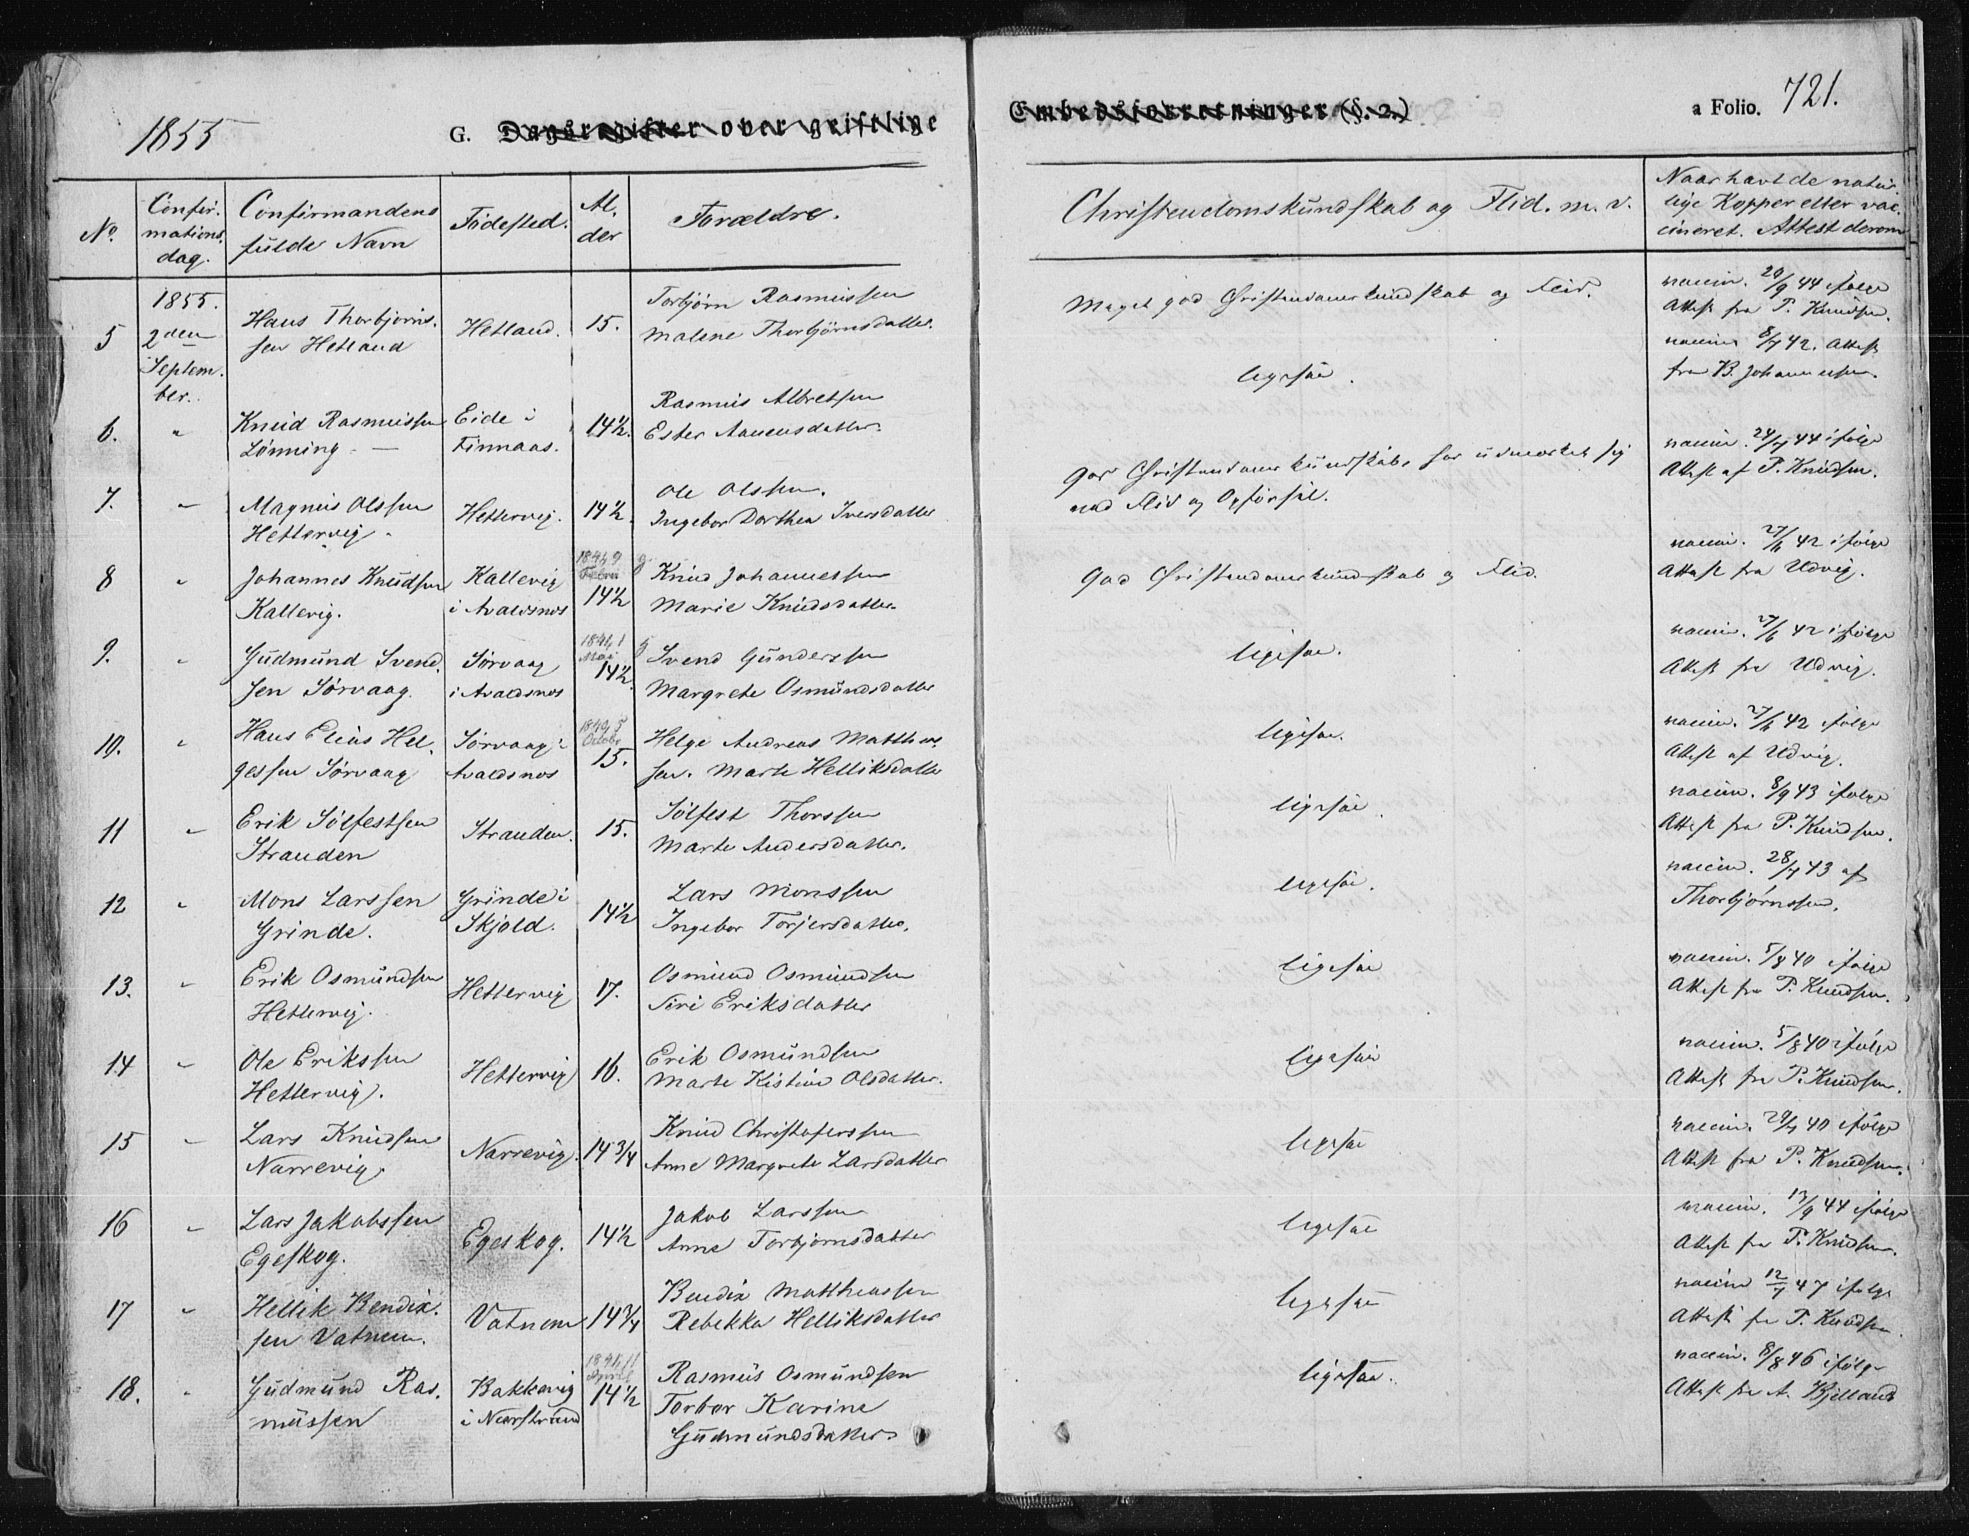 1855
G. Dagsregister over geistlige
Embedsforretninger (§. 2.)
a Folio. 721.
No.
Confir-
mations-
dag.
Confirmandens
fulde Navn
Födested.
Al-
der
Forældre.
Christendomskundskab og Flid. m. v.
Naar havt de natur-
lige Kopper eller vac-
cineret. Attest derom
5
1855.
2den
Septem-
ber.
Hans Thorbjörns-
sen Hetland
Hetland.
15.
Torbjørn Rasmussen
Malene Thorbjørnsdatter.
Meget god Christendomskundskab og Flid.
vaccin. 20/9 44 ifølge
Attest fra P. Knudsen.
6.
"
Knud Rasmussen
Lönning. —
Eide i
Finnaas.
14½.
Rasmus Albretsen
Ester Aanensdatter.
ligesaa.
vaccin. 8/7 42. Attest
fra B. Johannessen.
7.
"
Magnus Olssen
Hettervig.
Hettervig.
14½.
Ole Olssen.
Ingebor Dorthea Iversdatter
god Christendomskundskab, har udmærket sig
ved Flid og Opførsel.
vaccin. 24/7 44 ifølge
Attest af P. Knudsen.
8
"
Johannes Knudsen
Kallevig.
Kallevig
i Avaldsnes
1841, 9
Febru
14½
Knud Johannessen
Marie Knudsdatter.
God Christendomskundskab og Flid.
vaccin. 27/6 42 ifølge
Attest fra Udvig.
9.
"
Gudmund Svend-
sen Sørvaag.
Sørvaag
i Avaldsnes
1841, 1
Mai
14½.
Svend Gunderssen
Margrete Osmundsdatter
ligesaa.
vaccin. 27/6 42 ifølge
Attest fra Udvig.
10.
"
Hans Elias Hel-
gessen Sørvaag
Sørvaag i
Avaldsnes
1840, 5
Octobr
15.
Helge Andreas Matthias-
sen. Marte Helliksdatter
ligesaa.
vaccin. 27/6 42 ifølge
Attest af Udvig.
11
"
Erik Sölfestsen
Stranden
Stranden.
15.
Sölfest Thorssen
Marte Andersdatter.
ligesaa.
vaccin. 8/9 43 ifølge
Attest fra P. Knudsen.
12
"
Mons Larssen
Grinde.
Grinde i
Skjold.
14½
Lars Monssen
Ingebor Torjersdatter.
ligesaa.
vaccin. 28/7 43 af
Thorbjørnssen.
13.
"
Erik Osmundsen
Hettervig.
Hettervig
17.
Osmund Osmundsen
Siri Eriksdatter
ligesaa
vaccin. 5/8 40 ifølge
Attest fra P. Knudsen.
14
"
Ole Erikssen
Hettervig.
Hettervig
16.
Erik Osmundsen
Marte Kistine Olsdatter.
ligesaa
vaccin. 5/8 40 ifølge
Attest fra P. Knudsen.
15
"
Lars Knudsen
Narrevig.
Narrevig.
14¾
Knud Christoferssen
Anne Margrete Larsdatter
ligesaa
vaccin. 24/7 40 ifølge
Attest fra P. Knudsen.
16
"
Lars Jakobssen
Egeskog.
Egeskog.
14½
Jakob Larssen
Anne Torbjørnsdatter
ligesaa
vaccin. 13/9 44 ifølge
Attest fra P. Knudsen.
17
"
Hellik Bendix-
sen Vatnem.
Vatnem
14¾
Bendix Matthiassen
Rebekka Helliksdatter
ligesaa
vaccin 12/7 47 ifølge
Attest fra P. Knudsen.
18.
"
Gudmund Ras-
mussen
Bakkevig
i Nærstrand
1841, 11
April
14½
Rasmus Osmundsen
Torbor Karine
Gudmundsdatter
ligesaa.
vaccin. 8/8 46 ifølge
Attest fra A. Kjelland